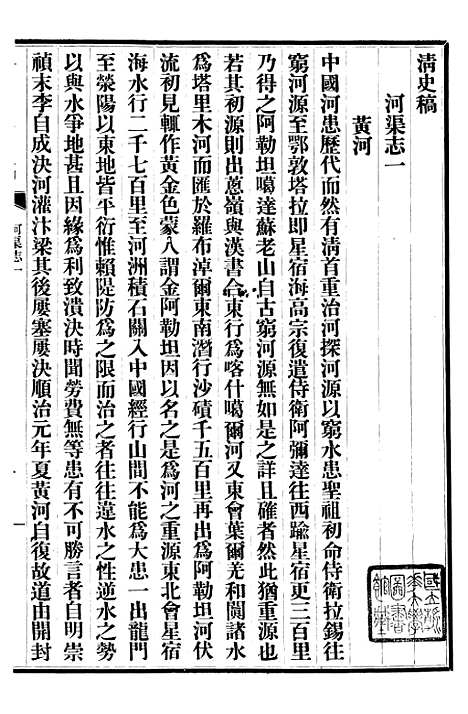 清史稿
河渠志一
黃河
中國河患歷代而然有清首重治河探河源以窮水患聖祖初命侍衛拉錫往
窮河源至鄂敦塔拉即星宿海高宗復遣侍衛阿彌達往西踰星宿更三百里
乃得之阿勒坦噶達蘇老山自古窮河源無如是之詳且確者然此重源也
若其初源則出蔥嶺與漢書合東行爲喀什噶爾河又東會葉爾羌和闐諸水
爲塔里木河而匯於羅布淖爾東南潛行沙磧千五百里再出爲阿勒坦河伏
流初見輒作黃金色蒙人謂金阿勒坦因以名之是爲河之重源東北會星宿
海水行二千七百里至河洲積石關入中國經行山間不能爲大患一出龍門
至滎陽以東地皆平衍惟賴隄防爲之限而治之者往往違水之性逆水之勢
以與水爭地甚且因緣爲利致潰決時聞勞費無等患有不可勝言者自明崇
禎末李自成決河灌汴梁其後屢塞屢決順治元年夏黃河自復故道由開封
河渠志一
一